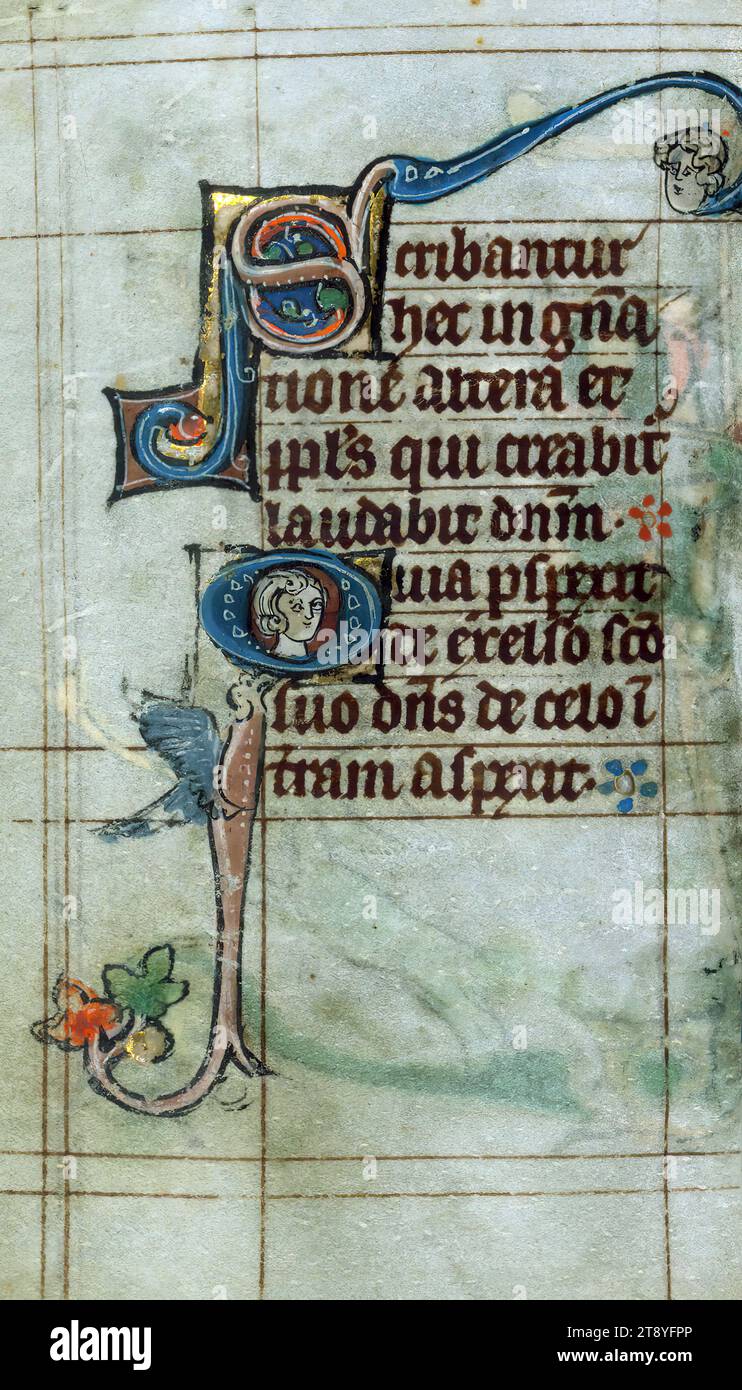 Scribantur
hec in gn̄a
tione altera et
ppl's qui creabit᷑
laudabit dn̄m.
Quia pspexit
de excelso sc̄o
suo dn̄s de celo ī
t̄ram aspexit.
alamy
Image ID: 2T8YFPP
www.alamy.com